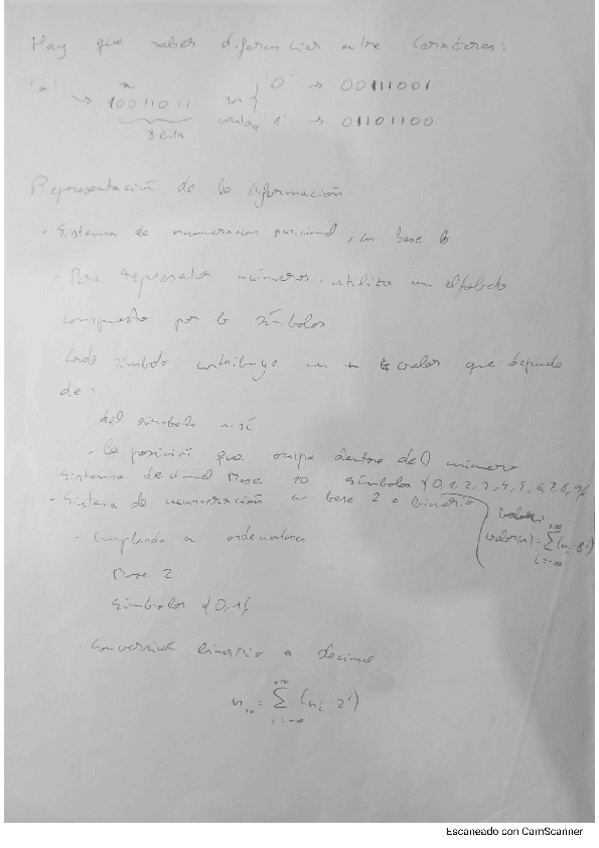 Hay que saber diferenciar entre Caracteres:
'a' → 10011011 '0' → 00111001
8 bits '1' → 01101100
Representación de la información
· Sistema de numeracion posicional, en base b
- Para representar números, utiliza un alfabeto
compuesto por b símbolos
Cada símbolo contribuye un valor que depende
de:
del símbolo a sí
· la posición que ocupa dentro del número
Sistema decimal Base 10 símbolos {0,1,2,3,4,5,6,7,8,9}
· Sistema de numeración en base 2 o binario
valor(n) = ∑ (ni · b^i)
+∞
i=-∞
- Empleado en ordenadores
Base 2
Símbolos {0,1}
- Conversión binario a decimal
n10 = ∑ (ni 2^i)
+∞
i=-∞
Escaneado con CamScanner